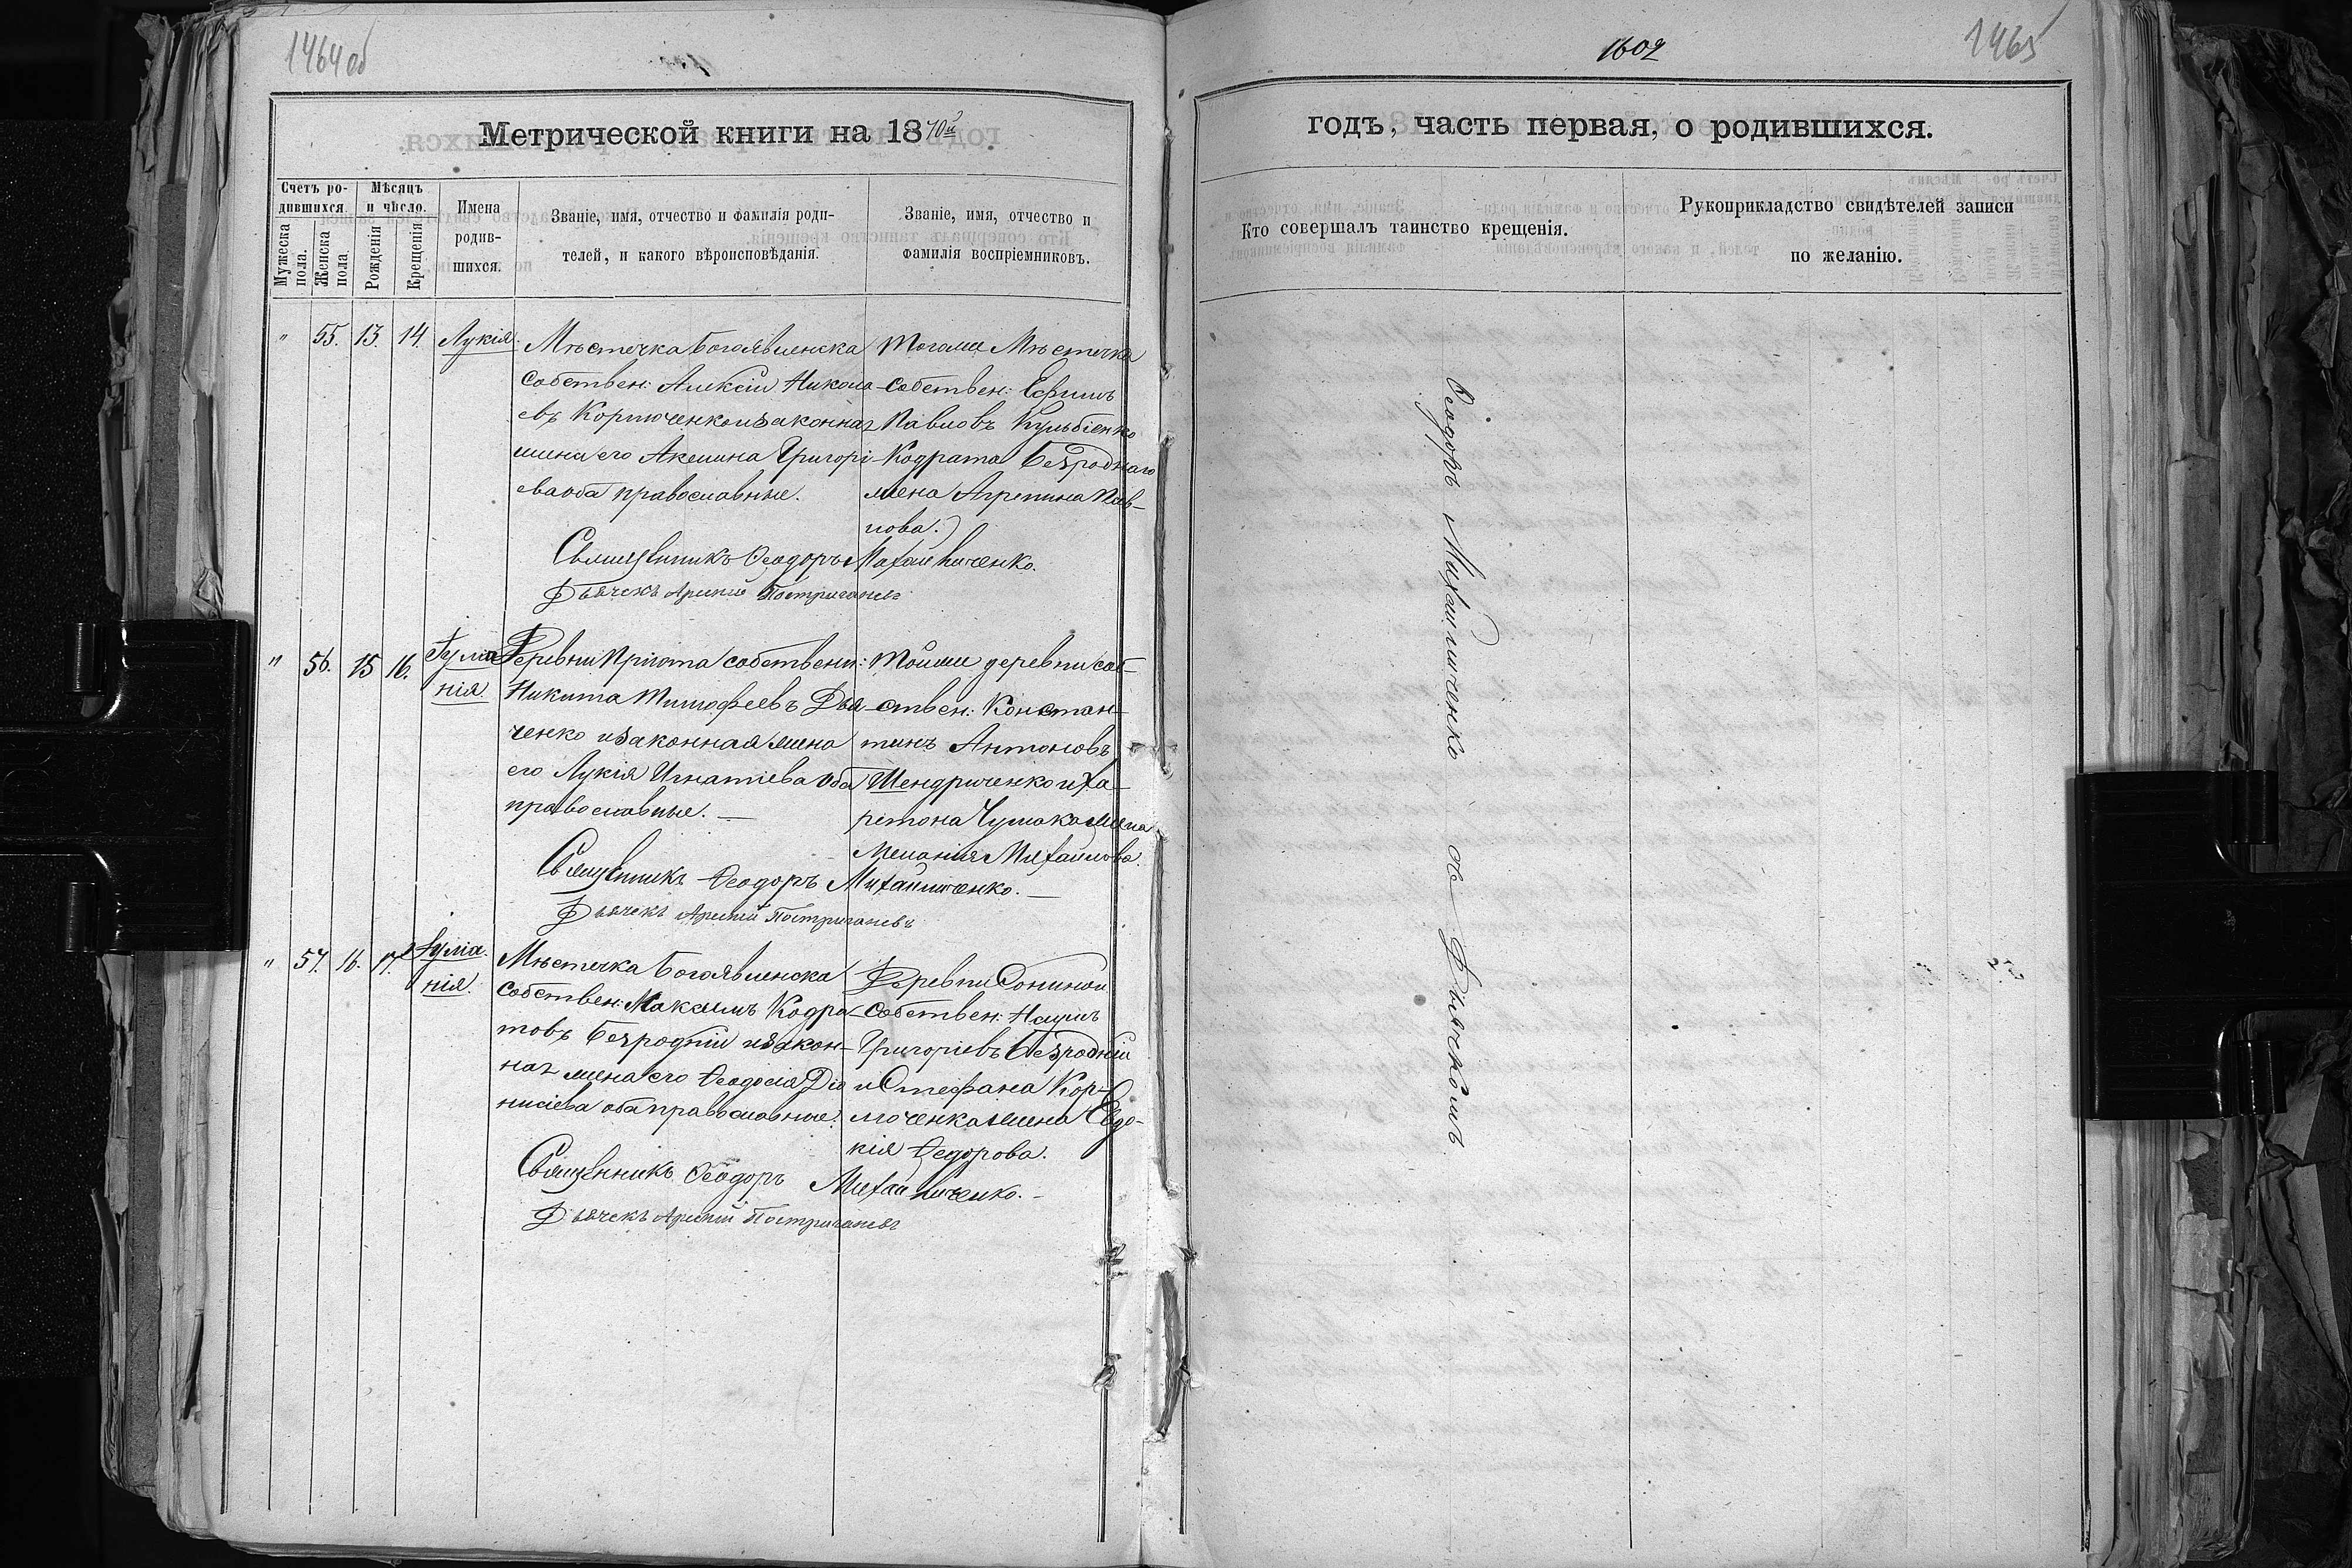 1464 об
Метрической книги на 1870й
Счетъ ро-
дившихся.
Мѣсяцъ
и число.
Мужеска
пола.
Женска
пола.
Рожденія
Крещенія
Имена
родив-
шихся.
Званіе, имя, отчество и фамилія роди-
телей, и какого вѣроисповѣданія.
Званіе, имя, отчество и
фамилія воспріемниковъ.
" 55. 13. 14. Лукія.
Мѣстечка Богоявленска
собствен: Алексій Никола-
евъ и законная
жена его Акилина Григорі-
ева оба православные.
Тогоже Мѣстечка
собствен: Ефимъ
Павловъ Кульбіенко
Кодрата Безроднаго
жена Агрепина Пав-
лова.
Священникъ Ѳеодоръ Михайличенко.
Дьячекъ Арсеній Постригачевъ
" 56. 15 16. Іулiа
нія.
Деревни Пріюта собственн:
Никита Тимофеевъ Дья-
ченко и законная жена
его Лукія Игнатіева оба
православные. —
Тойже деревни соб-
ствен: Констан-
тинъ Антоновъ
Шендриченко и Ха-
ретона Чумака жена
Меланія Михайлова.
Священникъ Ѳеодоръ Михайличенко. —
Дьячекъ Арсеній Постригачевъ
" 57. 16. 17. Іуліа-
нія.
Мѣстечка Богоявленска
собствен: Максимъ Кодра-
товъ Безродній и закон-
ная жена его Ѳеодосія Діо
нисіева оба православные.
Деревни Сониной
собствен: Наумъ
Григоріевъ Безродній
и Стефана Кор-
моченка жена Евдо-
кія Ѳедорова.
Священникъ Ѳеодоръ Михайличенко. -
Дьячекъ Арсеній Постригачевъ
1602
1465
годъ, часть первая, о родившихся.
Кто совершалъ таинство крещенія.
Рукоприкладство свидѣтелей записи
по желанію.
Ѳеодоръ Михайличенко съ Дьячкомъ